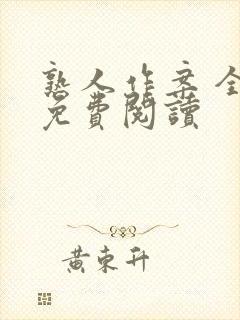 熟人作案全
免費閱讀
黃東升